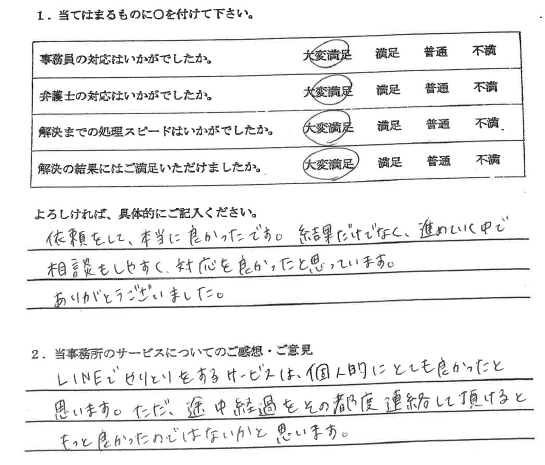 1．当てはまるものに○を付けて下さい。
事務員の対応はいかがでしたか。 大変満足 満足 普通 不満
弁護士の対応はいかがでしたか。 大変満足 満足 普通 不満
解決までの処理スピードはいかがでしたか。 大変満足 満足 普通 不満
解決の結果にはご満足いただけましたか。 大変満足 満足 普通 不満
よろしければ、具体的にご記入ください。
依頼をして、本当に良かったです。結果だけでなく、進めていく中で
相談もしやすく、対応を良かったと思っています。
ありがとうございました。
2．当事務所のサービスについてのご感想・ご意見
LINEでやりとりをするサービスは、個人的にとても良かったと
思います。ただ、途中経過をその都度連絡して頂けると
もっと良かったのではないかと思います。